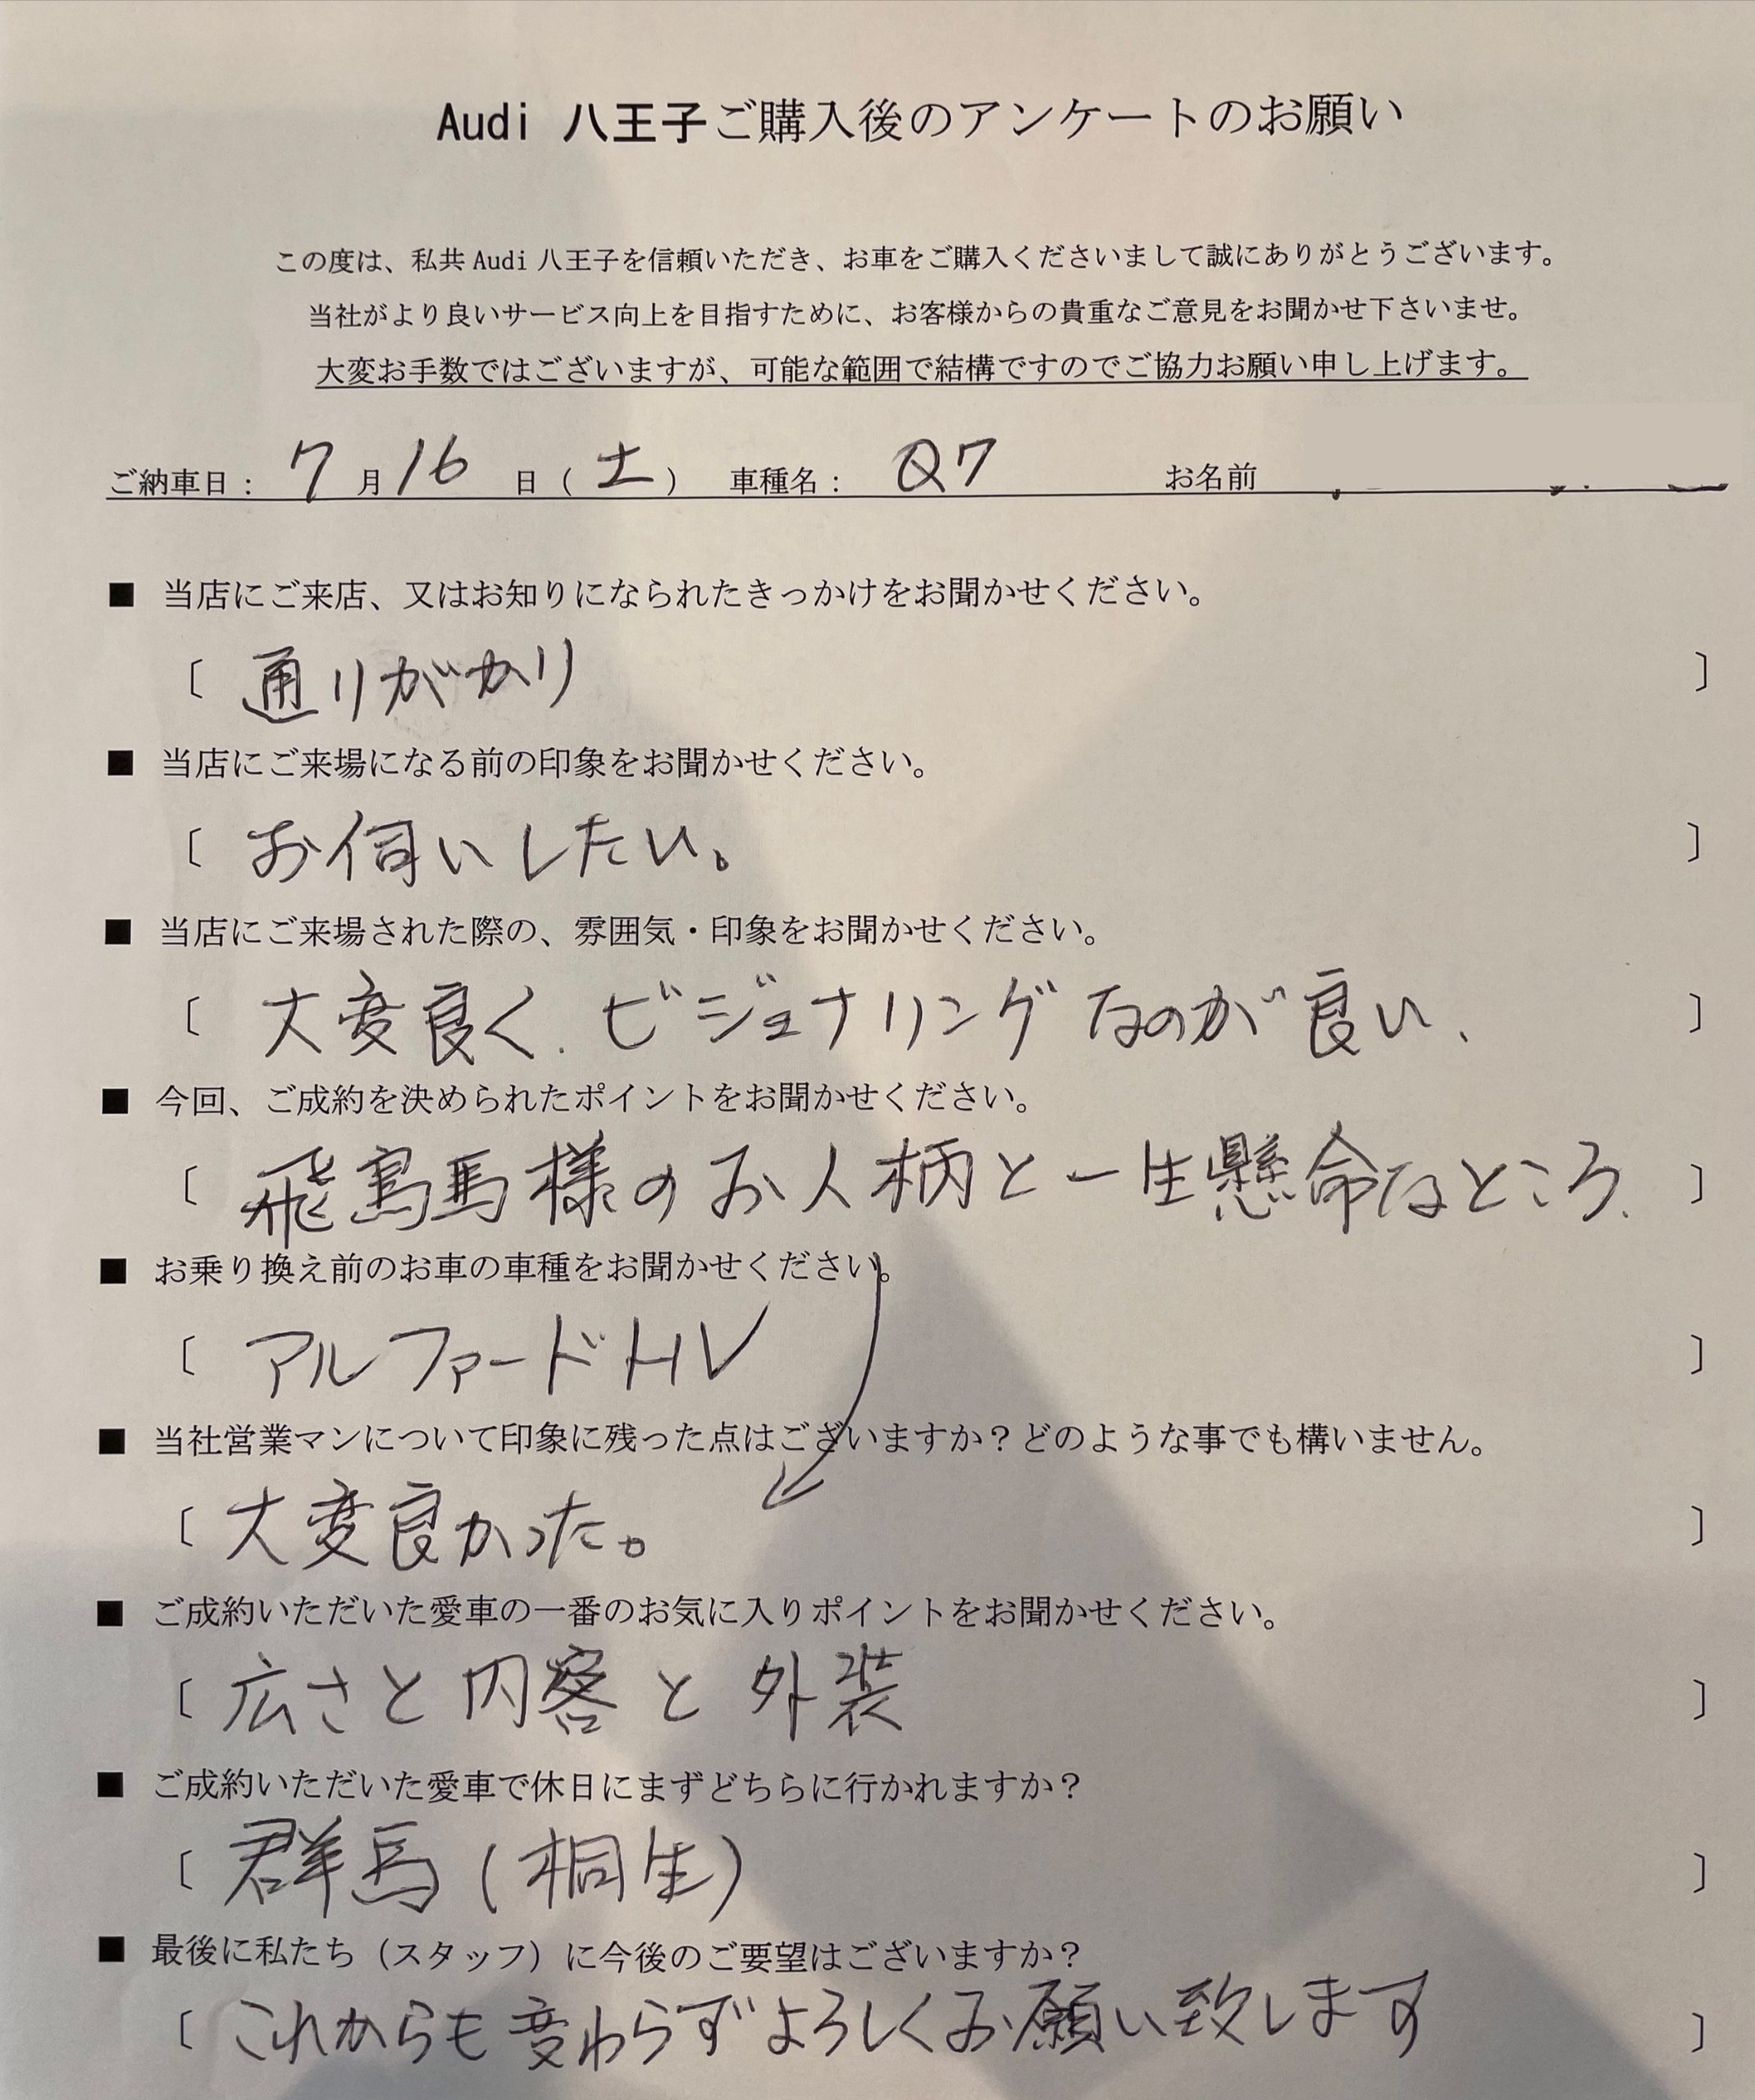 Audi 八王子ご購入後のアンケートのお願い
この度は、私共 Audi 八王子を信頼いただき、お車をご購入くださいまして誠にありがとうございます。
当社がより良いサービス向上を目指すために、お客様からの貴重なご意見をお聞かせ下さいませ。
大変お手数ではございますが、可能な範囲で結構ですのでご協力お願い申し上げます。
ご納車日： 7 月 16 日（ 土 ） 車種名： Q7 お名前
■ 当店にご来店、又はお知りになられたきっかけをお聞かせください。
〔 通りがかり 〕
■ 当店にご来場になる前の印象をお聞かせください。
〔 お伺いしたい。 〕
■ 当店にご来場された際の、雰囲気・印象をお聞かせください。
〔 大変良く、ビジョナリングなのが良い、 〕
■ 今回、ご成約を決められたポイントをお聞かせください。
〔 飛鳥馬様のお人柄と一生懸命なところ、 〕
■ お乗り換え前のお車の車種をお聞かせください。
〔 アルファードHV 〕
■ 当社営業マンについて印象に残った点はございますか？どのような事でも構いません。
〔 大変良かった。 〕
■ ご成約いただいた愛車の一番のお気に入りポイントをお聞かせください。
〔 広さと内容と外装 〕
■ ご成約いただいた愛車で休日にまずどちらに行かれますか？
〔 群馬(桐生) 〕
■ 最後に私たち（スタッフ）に今後のご要望はございますか？
〔 これからも変わらずよろしくお願い致します 〕